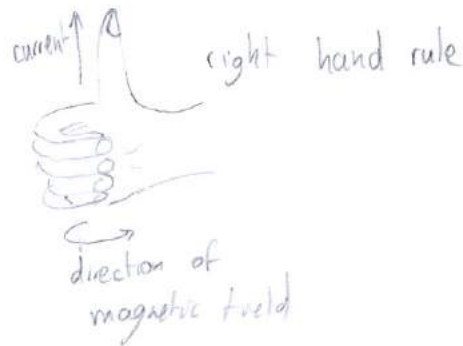 current
right hand rule
direction of
magnetic field